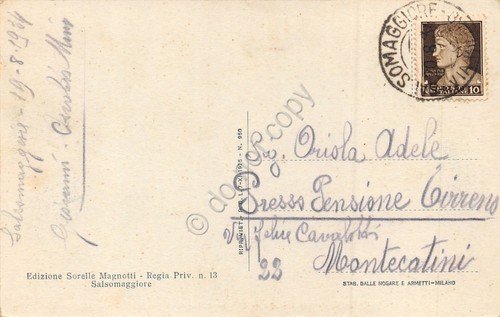 Salsomaggiore - 19-8-1934
Giovanni -
SOMAGGIORE
10
© da
copy
Sig. Oriola Adele
Presso Pensione Tirreno
Via Felice Cavalotti
22
Montecatini
Edizione Sorelle Magnotti - Regia Priv. n. 13
Salsomaggiore
STAB. DALLE NOGARE E ARMETTI - MILANO